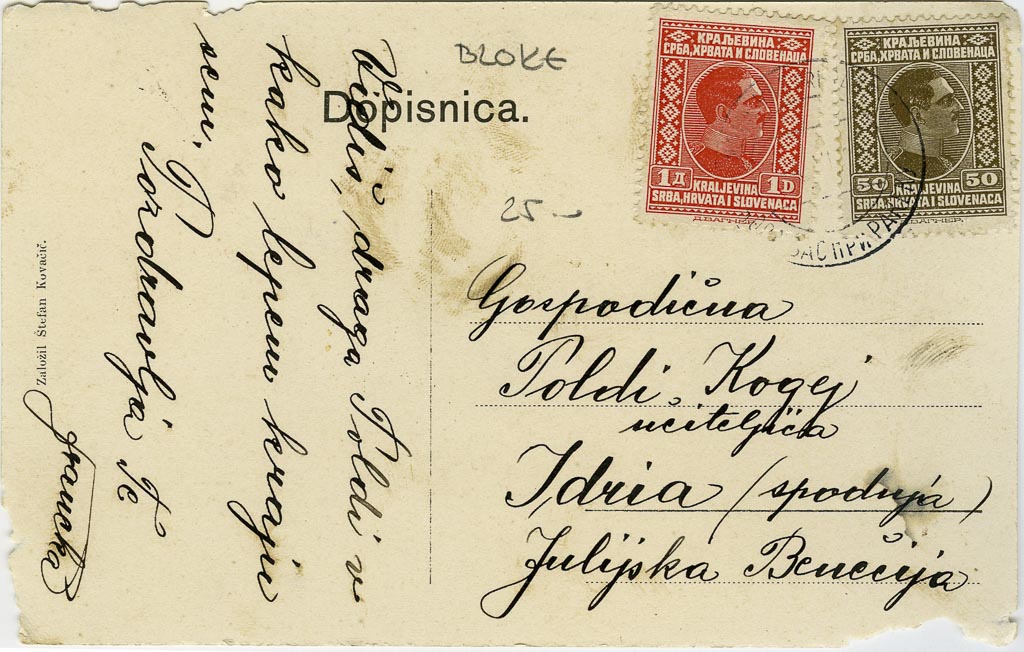 BLOKE
Dopisnica.
25-
КРАЉЕВИНА
СРБА, ХРВАТА И СЛОВЕНАЦА
1Д 1D
KRALJEVINA
SRBA, HRVATA I SLOVENACA
КРАЉЕВИНА
СРБА, ХРВАТА И СЛОВЕНАЦА
50 50
KRALJEVINA
SRBA, HRVATA I SLOVENACA
Vidiš, draga Poldi v
kako lepem kraju
sem.
Pozdravlja Te
Franska
Založil Štefan Kovačič.
Gospodična
Poldi Kogej
učiteljica
Idria (spodnja)
Julijska Benečija